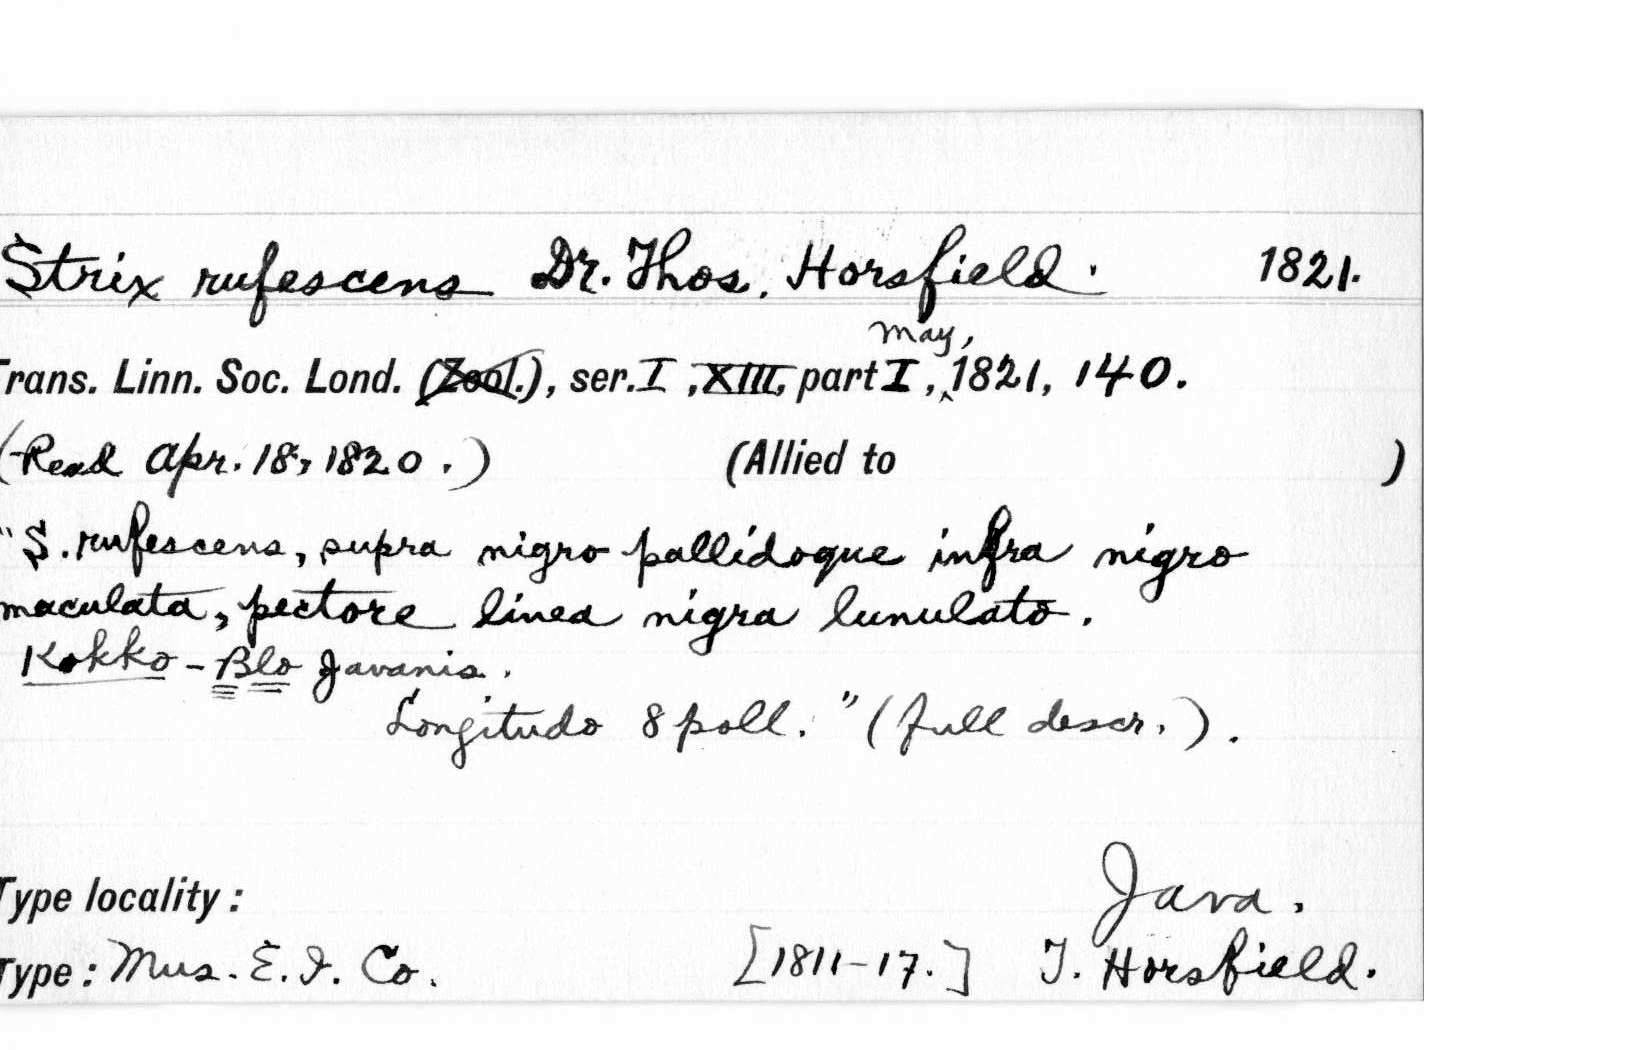 Strix rufescens Dr. Thos. Horsfield. 1821.
May,
Trans. Linn. Soc. Lond. (Zool.), ser. I, XIII, part I, 1821, 140.
(Read Apr. 18, 1820.) (Allied to )
"S. rufescens, supra nigro pallidoque infra nigro
maculata, pectore linea nigra lunulato.
Kokko-Blo Javanis.
Longitudo 8 poll." (full descr.).
Type locality: Java.
Type: Mus. E. I. Co. [1811-17.] T. Horsfield.